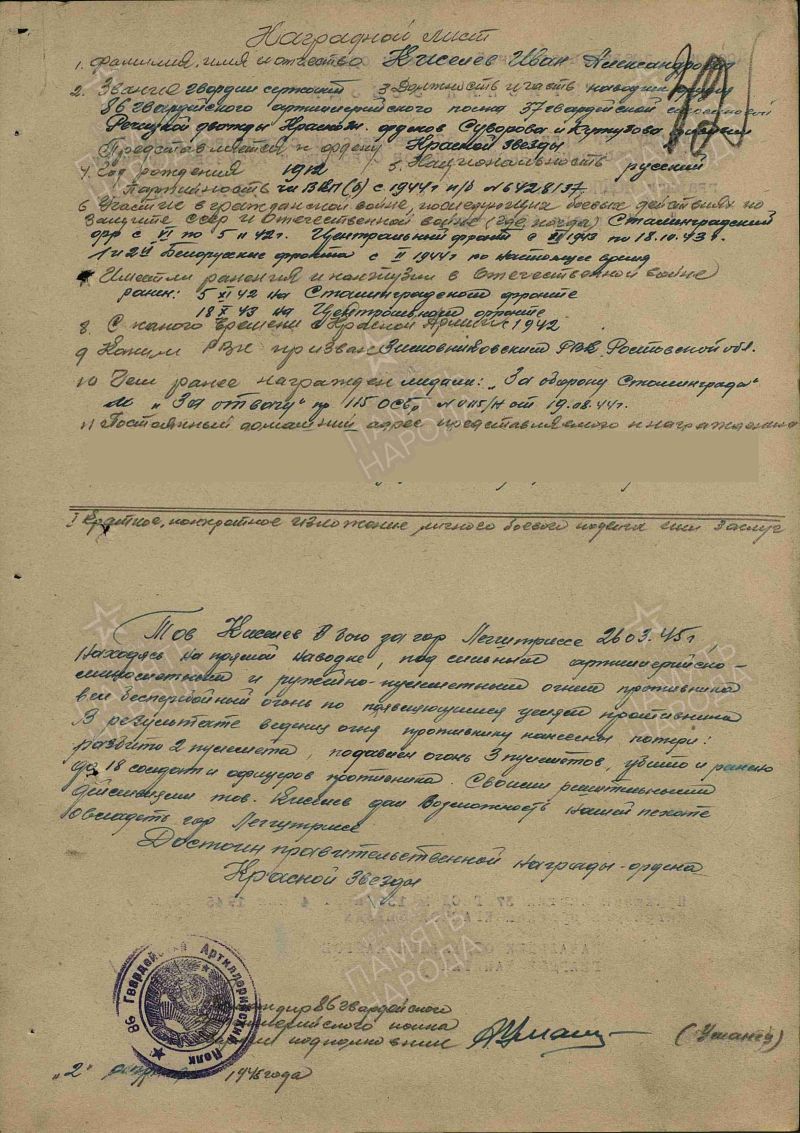 Наградной лист
1. Фамилия, имя и отчество Киселев Иван Александрович
2. Звание гвардии сержант 3. Должность и часть наводчик
86 гвардейского артиллерийского полка 37 гвардейской стрелковой
Речицкой дважды Краснозн. орденов Суворова и Кутузова дивизии
Представляется к ордену Красной Звезды
4. Год рождения 1912 5. Национальность русский
Партийность чл ВКП(б) с 1944г п/б № 6428137
6. Участие в гражданской войне, последующих боевых действиях по
защите СССР и Отечественной войне (где, когда) Сталинградский
фр с VI по 5 11 42г. Центральный фронт с 1943 по 18.10.43г.
1 и 2й Белорусские фронта с II 1944г по настоящее время
7 Имеет ли ранения и контузии в Отечественной войне
ранен: 5 XI 42 на Сталинградском фронте
18 X 43 на Центральном фронте
8. С какого времени в Красной Армии с 1942
9 Каким РВК призван Зимовниковским РВК Ростовской обл.
10 Чем ранее награжден медали: „За оборону Сталинграда"
и „За отвагу" пр 115 ОСБр № 0115/н от 19.08.44г.
11 Постоянный домашний адрес представляемого к награждению
I Краткое, конкретное изложение личного боевого подвига или заслуг
Тов Киселев в бою за гор Леггитриссе 26 03.45г
находясь на прямой наводке, под сильным артиллерийско-
минометным и ружейно-пулеметным огнем противника
вел бесперебойный огонь по появляющимся целям противника
В результате ведения огня противнику нанесены потери:
разбито 2 пулемета, подавлен огонь 3 пулеметов, убито и ранено
до 18 солдат и офицеров противника. Своими решительными
действиями тов. Киселев дал возможность нашей пехоте
овладеть гор Леггитриссе
Достоин правительственной награды-ордена
Красной Звезды
86 Гвардейский Артиллерийский Полк
Командир 86 гвардейского
артиллерийского полка
гвардии подполковник (Уманец)
„2" 1945 года
ПАМЯТЬ НАРОДА